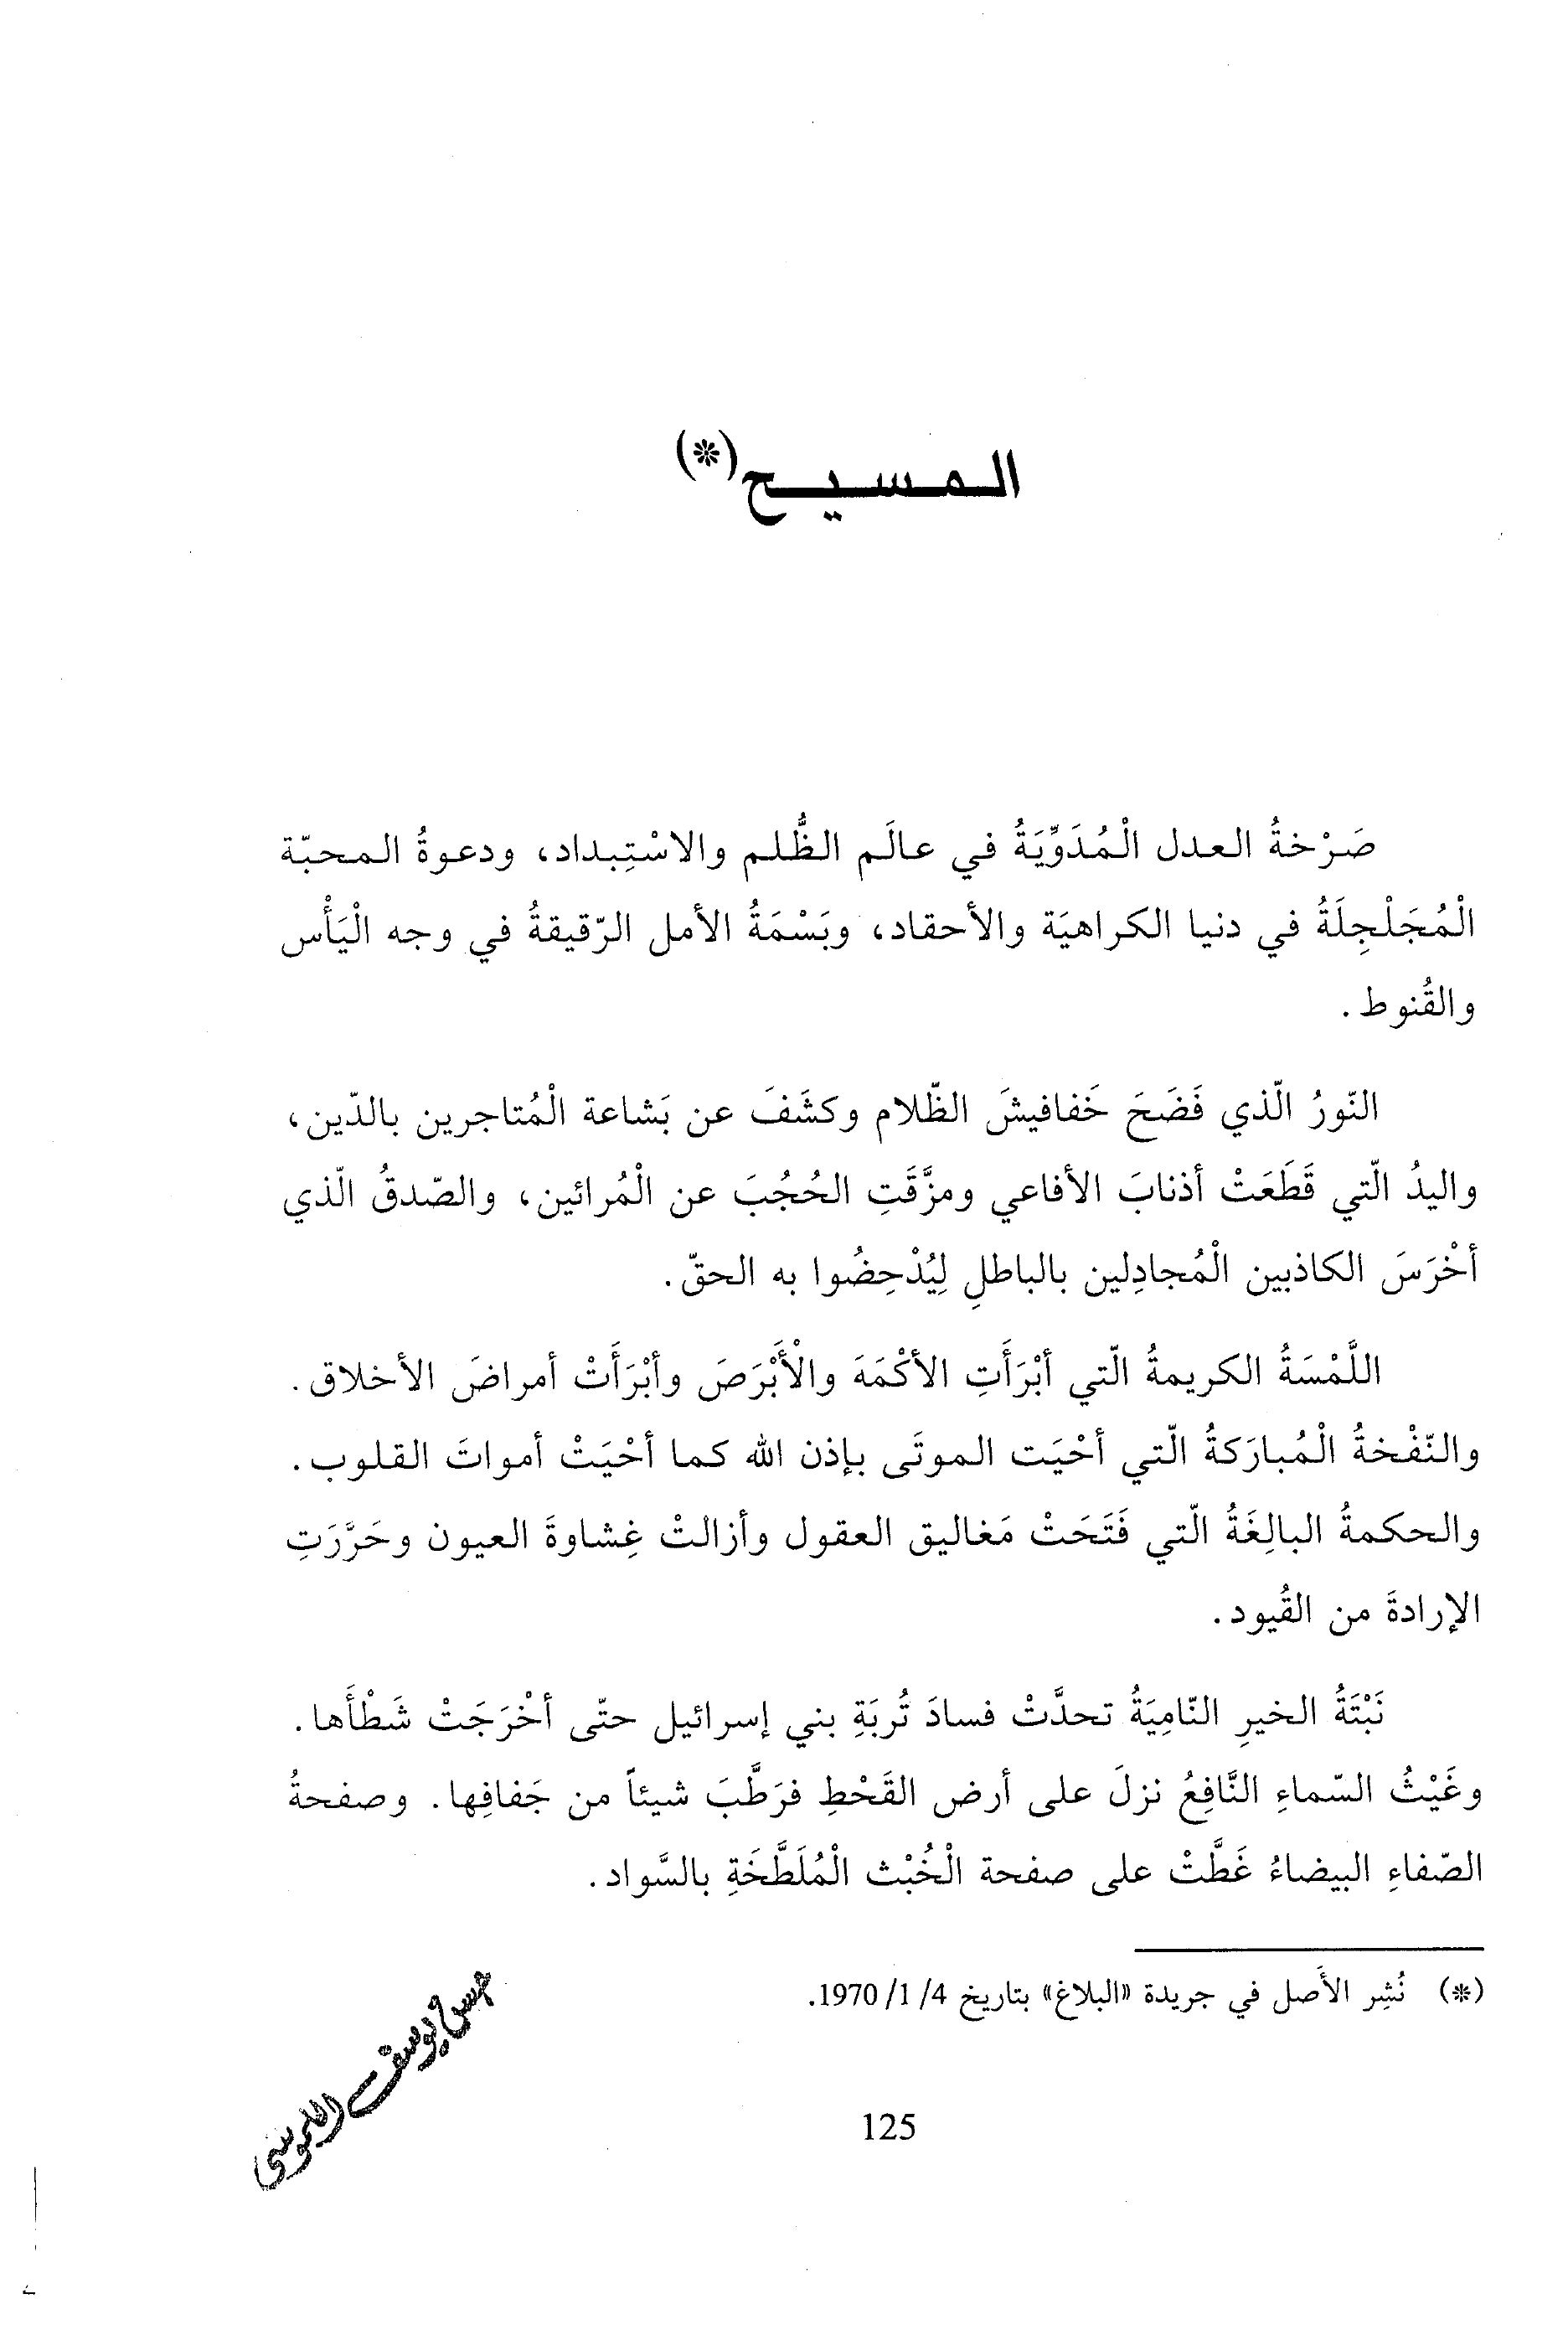 المسيح(*)
صَرْخةُ العدل الْمُدَوِّيَةُ في عالَم الظُّلم والاسْتِبداد، ودعوةُ المحبّة
الْمُجَلْجِلَةُ في دنيا الكراهيَة والأحقاد، وبَسْمَةُ الأمل الرّقيقةُ في وجه الْيَأْس
والقُنوط.
النّورُ الّذي فَضَحَ خَفافيشَ الظّلام وكشَفَ عن بَشاعة الْمُتاجرين بالدّين،
واليدُ الّتي قَطَعَتْ أذنابَ الأفاعي ومزَّقَتِ الحُجُبَ عن الْمُرائين، والصّدقُ الّذي
أخْرَسَ الكاذبين الْمُجادِلين بالباطلِ لِيُدْحِضُوا به الحقّ.
اللَّمْسَةُ الكريمةُ الّتي أبْرَأَتِ الأكْمَهَ والْأَبْرَصَ وأبْرَأَتْ أمراضَ الأخلاق.
والنّفْخةُ الْمُبارَكةُ الّتي أحْيَت الموتَى بإذن الله كما أحْيَتْ أمواتَ القلوب.
والحكمةُ البالِغَةُ الّتي فَتَحَتْ مَغاليق العقول وأزالتْ غِشاوةَ العيون وحَرَّرَتِ
الإرادةَ من القُيود.
نَبْتَةُ الخيرِ النّامِيَةُ تحدَّتْ فسادَ تُربَةِ بني إسرائيل حتّى أخْرَجَتْ شَطْأَها.
وغَيْثُ السّماءِ النَّافِعُ نزلَ على أرض القَحْطِ فرَطَّبَ شيئاً من جَفافِها. وصفحةُ
الصّفاءِ البيضاءُ غَطَّتْ على صفحة الْخُبْث الْمُلَطَّخَةِ بالسَّواد.
(*) نُشِر الأَصل في جريدة «البلاغ» بتاريخ 4/ 1/ 1970.
يوسف
125